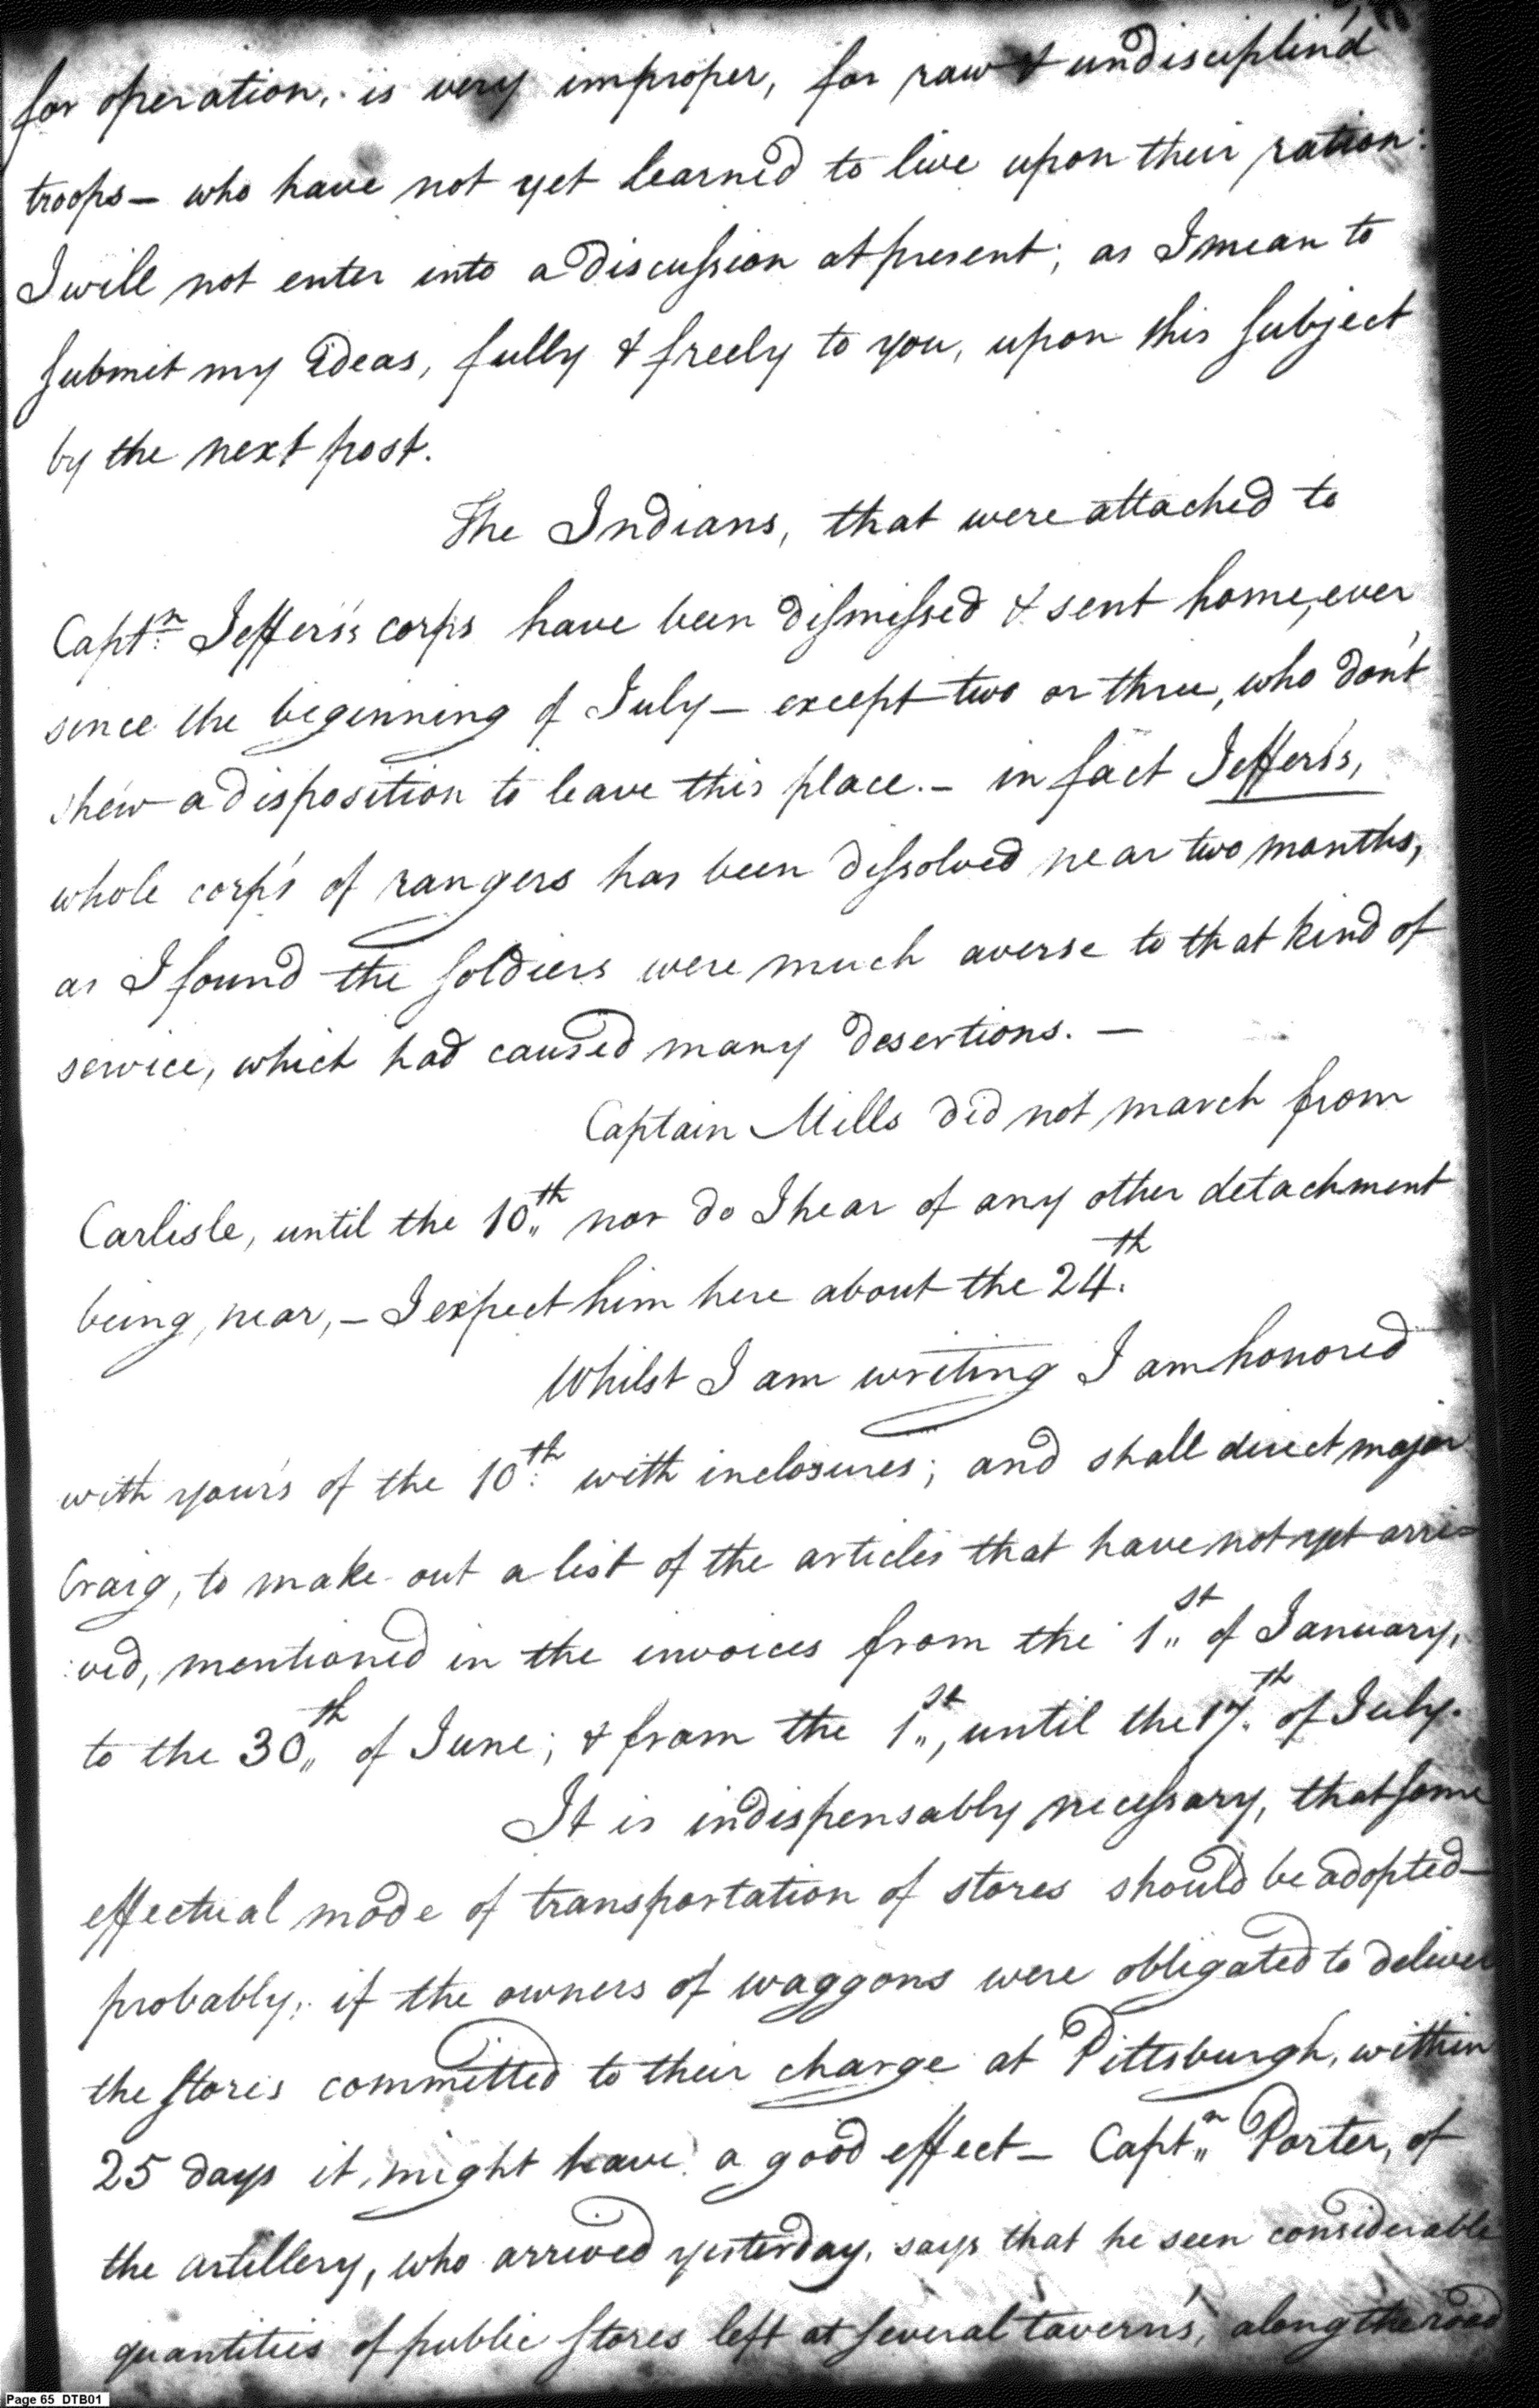 for operation, is very improper, for raw & undisciplin'd
troops — who have not yet learned to live upon their ration:
I will not enter into a discussion at present; as I mean to
submit my Ideas, fully & freely to you, upon this subject
by the next post.
The Indians, that were attached to
Captn. Jeffers's corps have been dismissed & sent home, ever
since the beginning of July — except two or three, who don't
shew a disposition to leave this place. — in fact Jeffers's,
whole corps of rangers has been dissolved near two months,
as I found the soldiers were much averse to that kind of
service, which had caused many desertions. —
Captain Mills did not march from
Carlisle, until the 10th nor do I hear of any other detachment
being, near, — I expect him here about the 24th.
Whilst I am writing I am honored
with your's of the 10th: with inclosures; and shall direct major
Craig, to make out a list of the articles that have not yet arri=
:ved, mentioned in the invoices from the 1st of January,
to the 30th of June; & from the 1st, until the 17th. of July.
It is indispensably necessary, that some
effectual mode of transportation of stores should be adopted —
probably, if the owners of waggons were obligated to deliver
the stores committed to their charge at Pittsburgh, within
25 days it, might have a good effect — Captn Porter, of
the artillery, who arrived yesterday, says that he seen considerable
quantities of public stores left at several tavern's, along the road
Page 65 DTB01